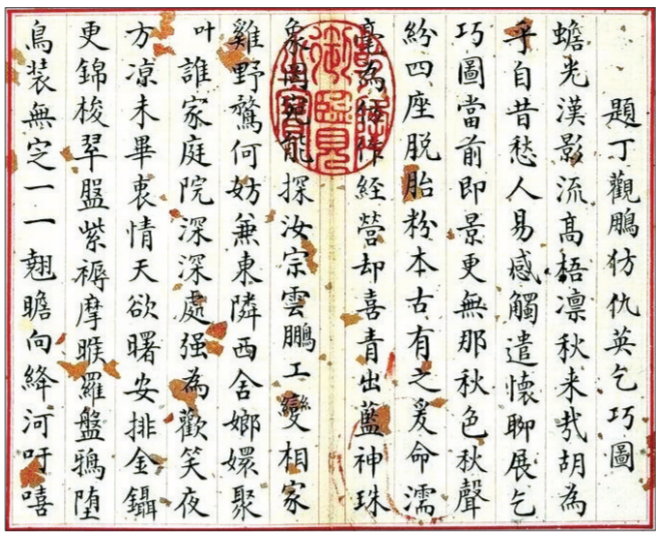 題丁觀鵬仿仇英乞巧圖
蟾光漢影流高梧凛秋来哉胡為
乎自昔愁人易感觸遣懷聊展乞
巧圖當前即景更無那秋色秋聲
紛四座脱胎粉本古有之爰命濡
毫為作経營却喜青出藍神珠
象罔宛能探汝宗雲鵬工變相家
雞野鶩何妨兼東隣西舍嫏嬛聚
叶誰家庭院深深處强為歡笑夜
方凉未畢衷情天欲曙安排金鑷
更錦梭翠紫褥摩睺羅盤鴉堕
鳥装無定一一翹瞻向絳河吁嘻
乾隆御覽之寶